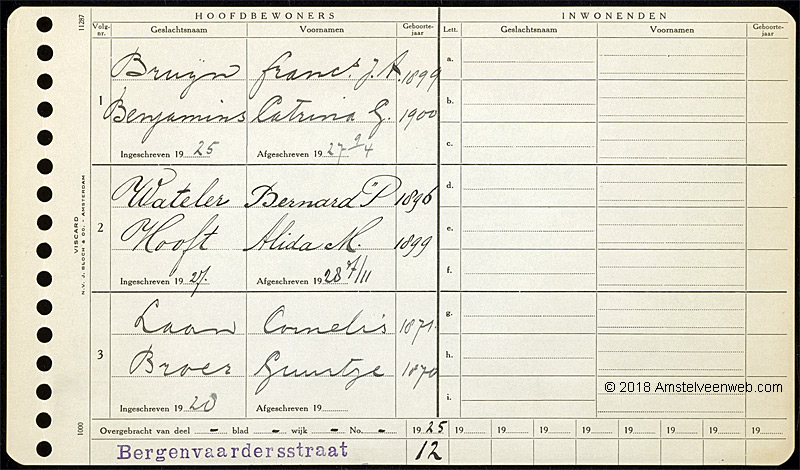 HOOFDBEWONERS INWONENDEN
Volg-nr. Geslachtsnaam Voornamen Geboorte-jaar Lett. Geslachtsnaam Voornamen Geboorte-jaar
11287
1
Bruÿn franc.s J. A. 1899
Benjamins Catrina G. 1900
Ingeschreven 1925 Afgeschreven 1927 9/4
a.
b.
c.
2
Wateler Bernard P 1896
Hooft Alida M. 1899
Ingeschreven 1927. Afgeschreven 1928 7/11
d.
e.
f.
3
Laan Cornelis 1871
Broer Guurtje 1870
Ingeschreven 1920 Afgeschreven 19
g.
h.
i.
VISCARD
N.V. J. BLOCH & CO. - AMSTERDAM
1000
Overgebracht van deel - blad - wijk - No. - 1925 19 19 19 19 19 19 19 19
Bergenvaardersstraat 12
© 2018 Amstelveenweb.com